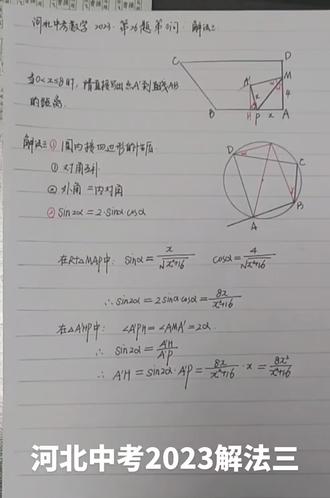 河北中考数学 2023. 第26题 第③问 解法三
当0<x≤8时,请直接写出点A'到直线AB
的距离.
C
D
M
A'
4
x
B
H
P
x
A
解法三 ① 圆内接四边形的性质
① 对角互补
② 外角 = 内对角
② sin2α = 2·sinα·cosα
D
C
B
A
在Rt△MAP中: sinα = x/√x²+16 cosα = 4/√x²+16
∴ sin2α = 2 sinα cosα = 8x/x²+16
在△A'HP中: ∠A'PH = ∠AMA' = 2α
∴ sin2α = A'H/A'P
∴ A'H = sin2α · A'P = 8x/x²+16 · x = 8x²/x²+16
河北中考2023解法三